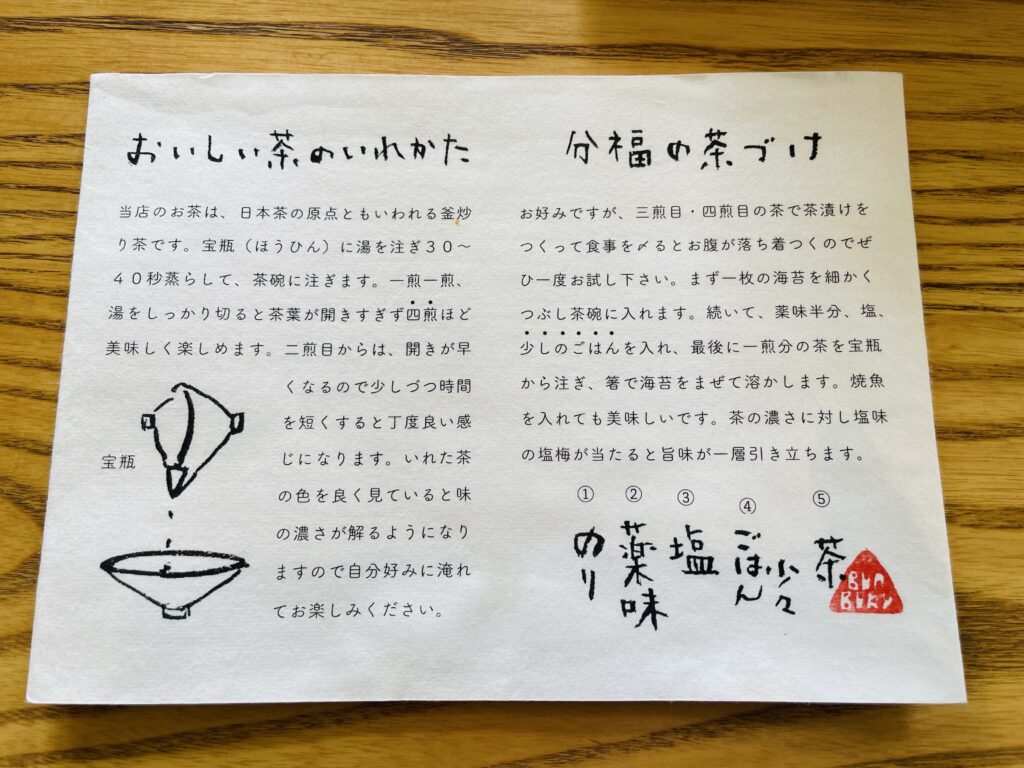 おいしい茶のいれかた
当店のお茶は、日本茶の原点ともいわれる釜炒
り茶です。宝瓶（ほうひん）に湯を注ぎ３０～
４０秒蒸らして、茶碗に注ぎます。一煎一煎、
湯をしっかり切ると茶葉が開きすぎず四煎ほど
美味しく楽しめます。二煎目からは、開きが早
くなるので少しづつ時間
を短くすると丁度良い感
じになります。いれた茶
の色を良く見ていると味
の濃さが解るようになり
ますので自分好みに淹れ
てお楽しみください。
宝瓶
分福の茶づけ
お好みですが、三煎目・四煎目の茶で茶漬けを
つくって食事を〆るとお腹が落ち着つくのでぜ
ひ一度お試し下さい。まず一枚の海苔を細かく
つぶし茶碗に入れます。続いて、薬味半分、塩、
少しのごはんを入れ、最後に一煎分の茶を宝瓶
から注ぎ、箸で海苔をまぜて溶かします。焼魚
を入れても美味しいです。茶の濃さに対し塩味
の塩梅が当たると旨味が一層引き立ちます。
①のり
②薬味
③塩
④ごはん少々
⑤茶
BUN
BUKU